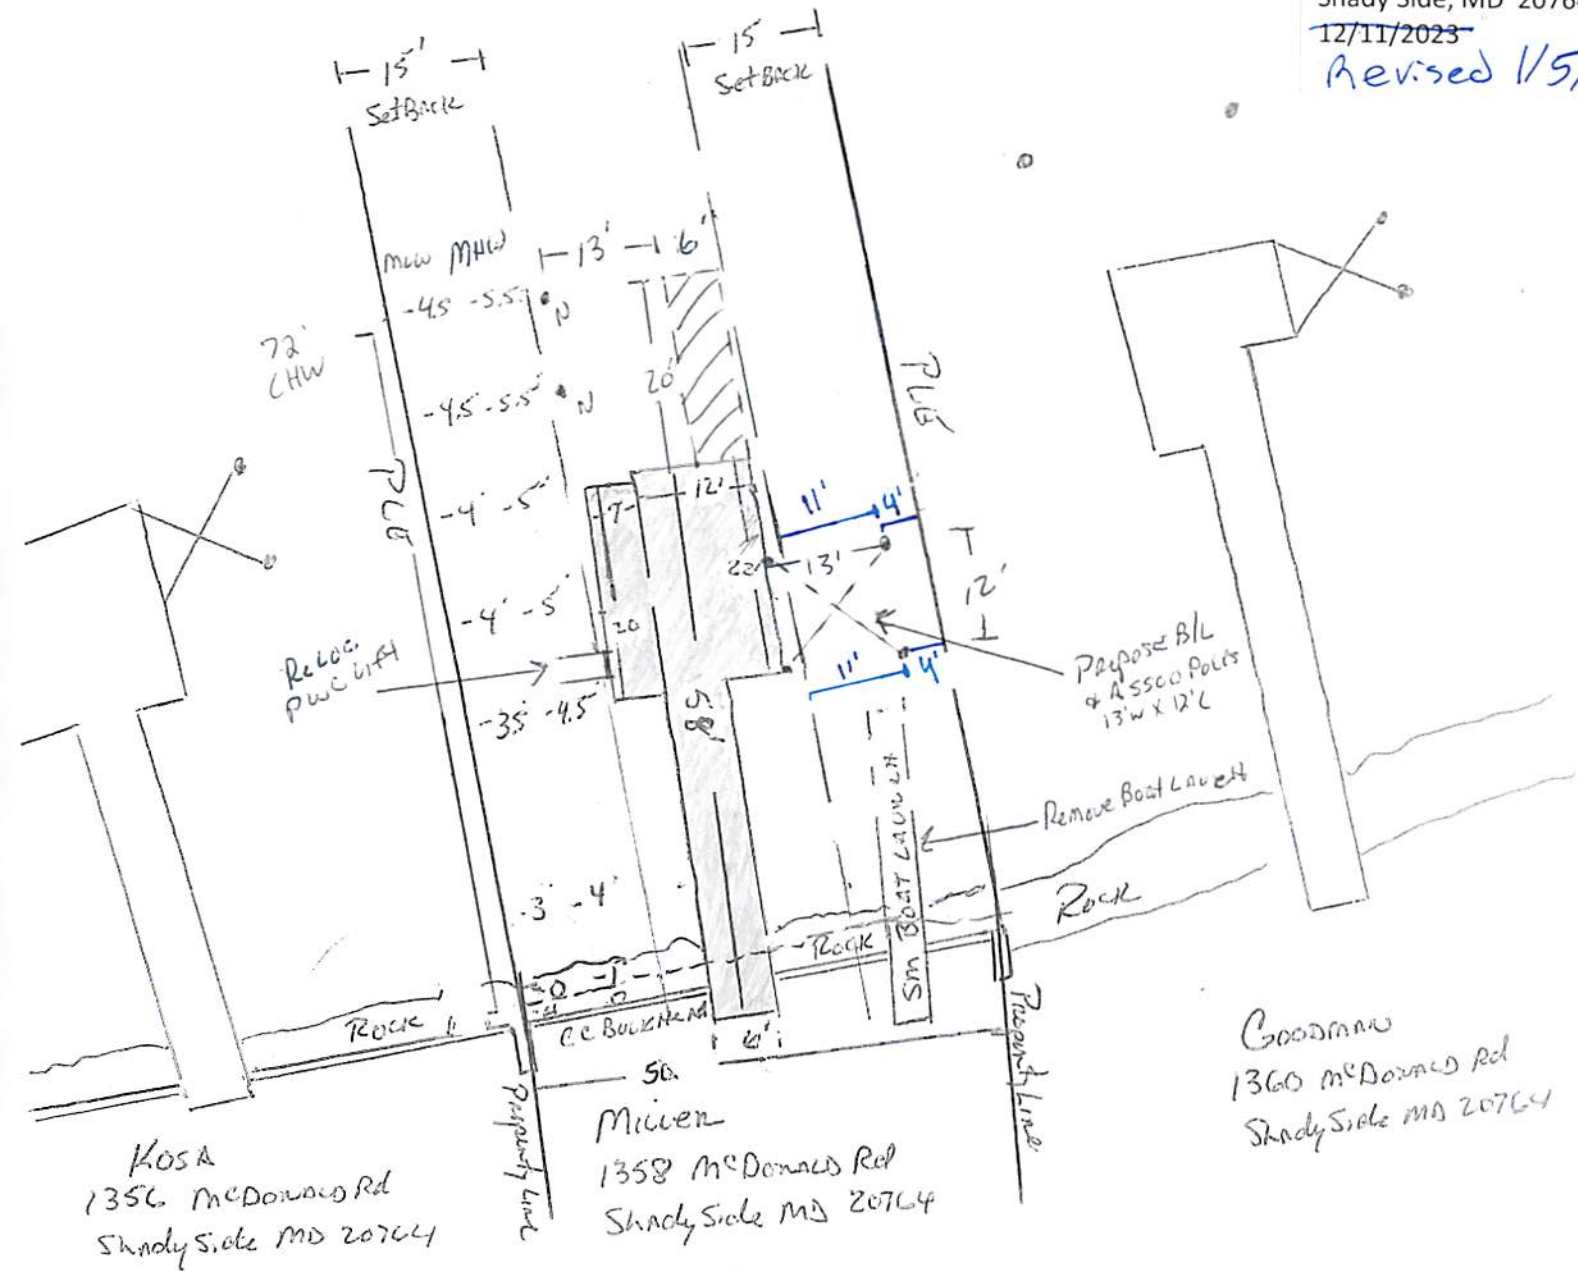 Shady Side, MD 2076
12/11/2023
Revised 1/5/
15'
SetBack
15
SetBack
MLW MHW
13'
6'
-4.5 -5.5'
N
72'
CHW
-4.5 -5.5'
N
20'
PLE
PLE
-4' -5'
-7-
12'
11'
4'
22'
13'
12'
-4' -5'
20
Reloc.
PWC Lift
-3.5' -4.5'
58'
11'
4'
Propose B/L
& Assoo Poles
13'W X 12'L
Remove Boat Launch
Sm Boat Launch
-3' -4'
Rock
Rock
Rock
CC Bulkhead
6'
50.
Property Line
Property Line
Kosa
1356 McDonald Rd
Shady Side MD 20764
Miller
1358 McDonald Rd
Shady Side MD 20764
Goodman
1360 McDonald Rd
Shady Side MD 20764